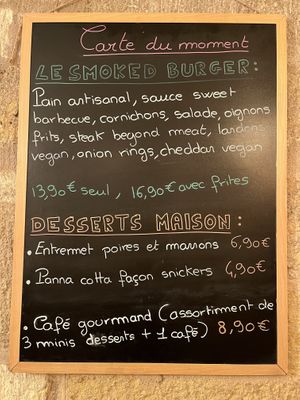 Carte du moment
LE SMOKED BURGER:
Pain artisanal, sauce sweet
barbecue, cornichons, salade, oignons
frits, steak beyond meat, lardons
vegan, onion rings, cheddar vegan
13,90€ seul, 16,90€ avec frites
DESSERTS MAISON:
• Entremet poires et marrons 6,90€
• Panna cotta façon snickers 4,90€
• Café gourmand (assortiment de
3 minis desserts + 1 café) 8,90€